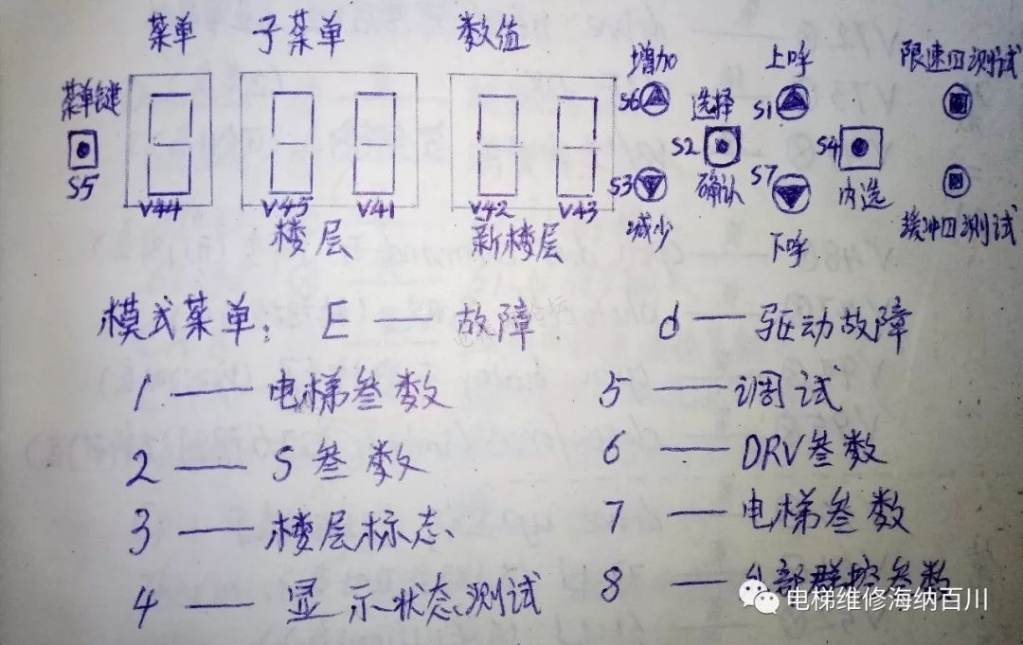 菜单 子菜单 数值
增加 上呼 限速四测试
菜单键 S6 选择 S1
S2 S4
S5 S3 确认 S7 内选
V44 V45 V41 V42 V43
楼层 新楼层 减少 下呼 缓冲四测试
模式菜单: E — 故障 d — 驱动故障
1 — 电梯叁数 5 — 调试
2 — S叁数 6 — DRV叁数
3 — 楼层标态 7 — 电梯叁数
4 — 显示状态测试 8 — 部群控叁数
电梯维修海纳百川